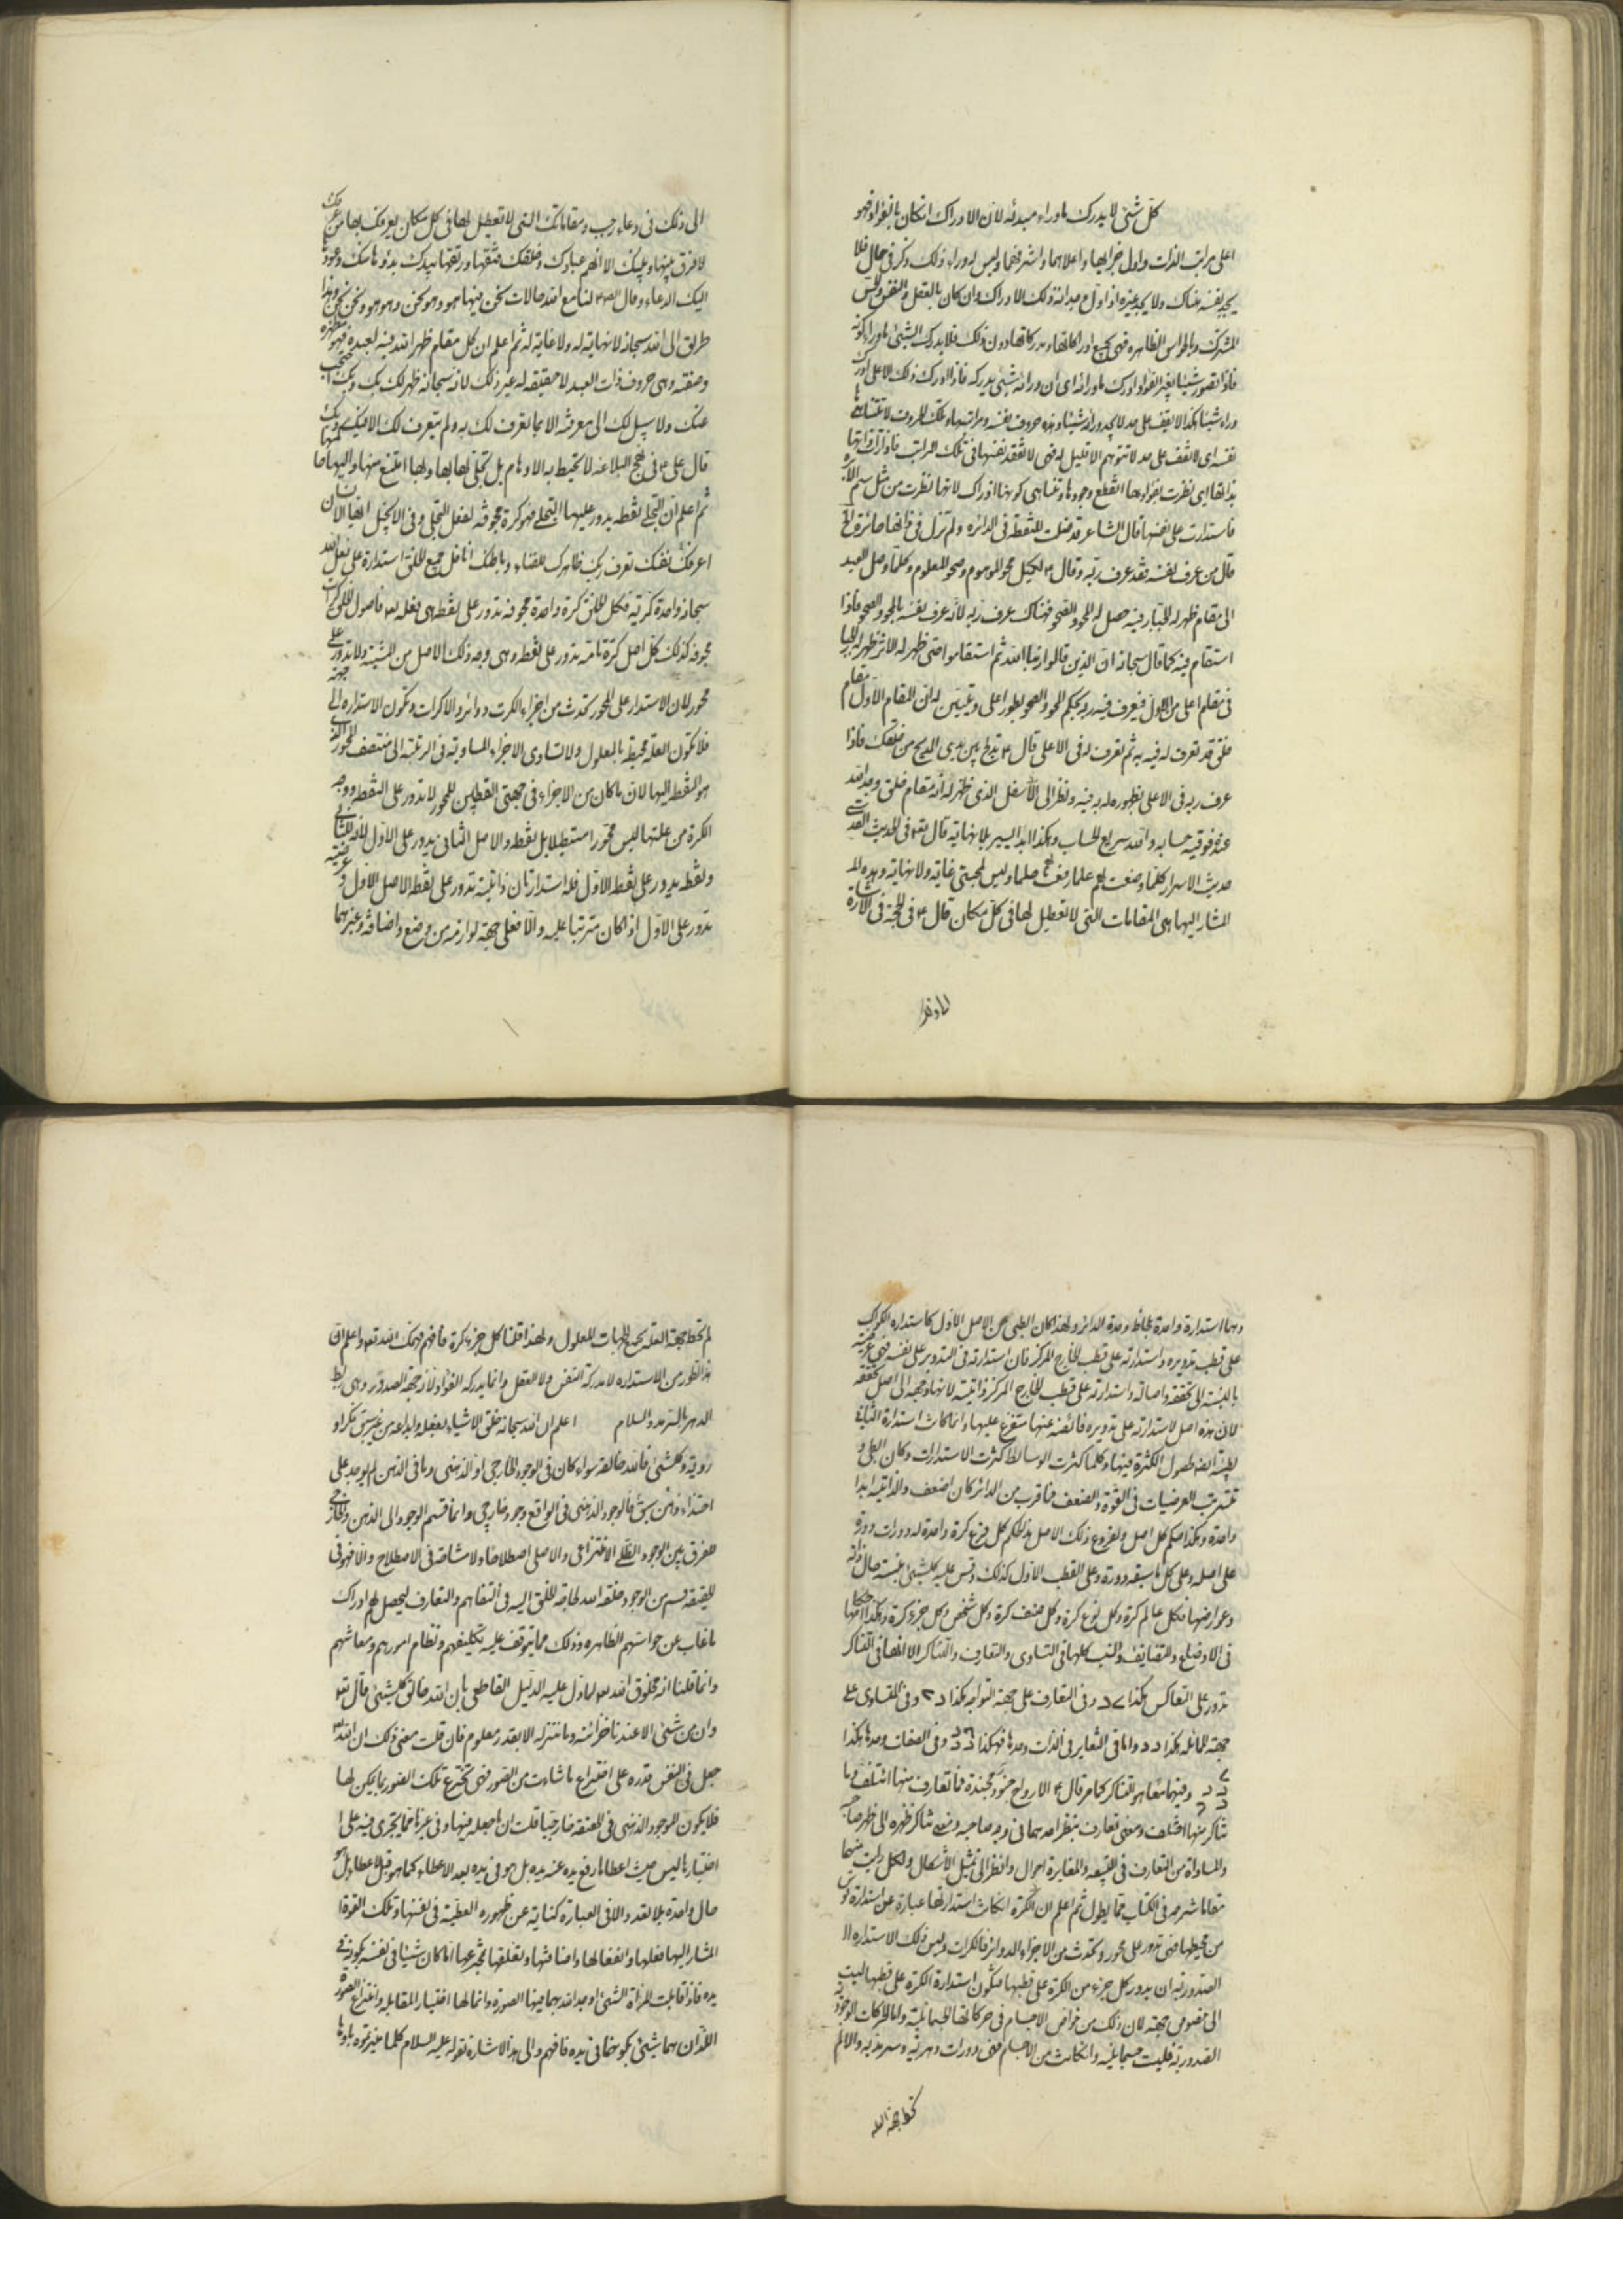 كل شئ لا يدرك ما وراء مبدئه لان الادراك ان كان بالفؤاد فهو
اعلى مراتب الذات واول جزأيها واعلاهما واشرفهما وليس له وراء ذلك ذكر في حال فلا
يجد نفسه هناك ولا يجد غيره اذ اول مبدأه ذلك الادراك وان كان بالعقل والنفس والحس
المشترك والحواس الظاهره فهى بجميع ادراكاتها ومدركاتها دون ذلك فلا يدرك الشئ ماوراء كونه
فاذا تصور شيئا بغير الفؤاد ادرك ماورائه اى ان ورائه شئ يدركه فاذا ادرك ذلك الاعلى ادرك
وراه شيئا هكذا لا يقف على حد لا يجد ورائه شيئا وهذه حروف نفسه ومراتبها وتلك الحروف لا تتناهى
نفسه اى لا تقف على حد لا تتوهم الا قليل له فهى لا تفقد نفسها فى تلك المراتب فاذا
نظرت بفؤادها انقطع وجودها وتناهى كونها اذ ذاك لانها نظرت من مثل سم الابره
فاستدارت على نفسها قال الشاعر قد ضلت النقطة في الدائره ولم تزل في ذاتها حائره
قال من عرف نفسه فقد عرف ربه وقال ع لكميل محو الموهوم وصحو المعلوم وكلما وصل العبد
الى مقام ظهر له الجبار فيه حصل له المحو والصحو فهناك عرف ربه لانه عرف نفسه بالمحو والصحو فاذا
استقام فيه كما قال سبحانه ان الذين قالوا ربنا الله ثم استقاموا حتى ظهر له الاثر ظهر له الجبار
في مقام اعلى من الاول فيعرف فيه ربه بحكم المحو والصحو بطور اعلى وتبين له ان المقام الاول مقام
خلق قد تعرف له فيه به ثم تعرف له في الاعلى قال ع تدلج بين يدى المدلج من خلقك فاذا
عرف ربه في الاعلى بظهوره له به فيه ونظر الى الاسفل الذى ظهر له انه مقام خلق وجد الله
عنده فوفيه حسابه والله سريع الحساب وهكذا ابدا يسير بلا نهاية قال تعه في الحديث القدسى
حديث الاسرار كلما وضعت لهم علما رفعت لهم حلما وليس لمحبتى غاية ولا نهاية وهذه
المشار اليها هى المقامات التى لا تعطيل لها فى كل مكان قال ع فى الحجة فى الاشارة
الى ذلك فى دعاء رجب ومقاماتك التى لا تعطيل لها فى كل مكان يعرفك بها من عرفك
لا فرق بينها وبينك الا انهم عبادك وخلقك فتقها ورتقها بيدك بدؤها منك وعودها
اليك الدعاء وقال الص ع لنا مع الله حالات نحن فيها هو وهو نحن وهو هو ونحن نحن وهذا
طريق الى الله سبحانه لا نهاية له ولا غاية له ثم اعلم ان كل مقام ظهر الله فيه لعبده فهو مظهره
وصفته وهى حروف ذات العبد لا حقيقة له غير ذلك لانه سبحانه ظهر لك بك وبك احتجب
عنك ولا سبيل لك الى معرفته الا بما تعرف لك به ولم يتعرف لك الا فيك وبك
قال على ع فى نهج البلاغه لا تحيط به الاوهام بل تجلى لها بها وبها امتنع منها واليها حاكمها
ثم اعلم ان التجلى نقطه يدور عليها التجلى فهو كرة مجوفة لفعل التجلى وفى الانجيل ايها الانسان
اعرف نفسك تعرف ربك ظاهرك للفناء وباطنك انا فكل جميع الخلق استدارة على فعل الله
سبحانه واحدة كرية فكل الخلق كرة واحدة مجوفه تدور على نقطه هى فعله تعه فاصول الخلق كرات
مجوفه كذلك كل اصل كرة تامة تدور على نقطه وهى وجه ذلك الاصل من المشيئة ولا تدور على
محور لان الاستدارة على المحور تحدث من اجزاء الكرة دوائر والاكرات وتكون الاستداره الى جهة
فلا تكون العلة محيطة بالمعلول ولا تساوى الاجزاء المساوية فى الرتبة الى منتصف المحور الذى
هو النقطه اليها لان ما كان من الاجزاء فى جهتى القطبين للمحور لا تدور على النقطه ووجه
الكرة من علتها ليس محورا مستطيلا بل نقطه والاصل الثانى يدور على الاول لانه للثانى
ونقطه يدور على نقطه الاول فله استدارتان ذاتيه تدور على نقطه الاصل الاول وعرضيه
تدور على الاول اذا كان مترتبا عليه والا فعلى جهة لوازمه من وضع واضافه وغيرهما
وهما استدارة واحدة بلحاظ وحدة الدائر ولهذا كان البطى من الاصل الاول كاستداره الكوكب
على قطب تدويره واستدارته على قطب الخارج المركز فان استدارته فى التدوير على نفسه فهى عرضيه
بالنسبة الى تحققه واصالته واستدارته على قطب الخارج المركز ذاتية لانها وجهه الى اصل تحققه
لان هذه اصل لاستدارته على تدويره فائضه عنها متفرع عليها وانما كانت استدارة الثانى
بطيئة ايضا لحصول الكثرة فيها وكلما كثرت الوسائط كثرت الاستدارات وكان البطى و
تتفرق العرضيات فى القوة والضعف فما قرب من الدائر كان اضعف والذاتيه ابدا
واحدة وهكذا حكم كل اصل ولفروع ذلك الاصل بذلك الحكم كل فرع كرة واحدة له دورات دورة
على اصله وعلى كل ما سبقه دورة وعلى القطب الاول كذلك وقس عليه كل شئ بنسبة حال ذاته
وعوارضها فكل عالم كرة وكل نوع كرة وكل صنف كرة وكل شخص وكل جزء كرة وهكذا احكامها
فى الاوضاع والتضايف والنسب كلها فى التساوى والتعارف والتناكر الا انها فى التناكر
تدور على التعاكس هكذا وفى التعارف على جهة التواجه هكذا وفى التساوى على
جهة المماثله هكذا د د واما فى التغاير فى الذات وحدها فهكذا وفى الصفات وحدها هكذا
وفيهما معا هو التناكر كما مر قال ع الارواح جنود مجندة فما تعارف منها ائتلف وما
تناكر منها اختلف ومعنى تعارف ينظر احدهما فى وجه صاحبه ومعنى تناكر ظهره الى ظهر صاحبه
والمساواة من التعارف فى التبيعه والمغايرة احوال وانظر الى تمثيل الاشكال ولكل رايت منها
مقاما شرحه فى الكتاب مما يطول ثم اعلم ان الكرة ان كانت استدارتها عبارة عن استدارة قوس
من محيطها فهى تدور على محور وتحدث من الاجزاء الدوائر فالكرات وليس ذلك الاستداره
الصدورية ان يدور كل جزء من الكرة على قطبها فتكون استدارة الكرة على قطبها ليست
الى خصوص جهة لان ذلك من خواص الاجسام فى حركاتها الجسمانية واما الحركات الوجودية
الصدورية فليست جسمانيه وان كانت من الاجسام فهى دورات دهرية وسرمديه والا لم
تحط جهة العلة
لم تحط جهة العلة بجميع جهات المعلول ولهذا قلنا كل جزء كرة فافهم فهمك الله تعه واعلم ان
هذا الطور من الاستداره لا يدركه النفس ولا العقل وانما يدركه الفؤاد لانه جهة الصدور وهى ربط
الدهر بالسرمد والسلام اعلم ان الله سبحانه خلق الاشياء بفعله وابداعه من غير سبق فكر او
روية وكل شئ فالله خالقه سواء كان فى الوجود الخارجى او الذهنى وما فى الذهن لم يوجد على
احتذاء من سبق فالوجود الذهنى فى الواقع وجود خارجى وانما قسم الوجود الى الذهن والخارجى
للفرق بين الوجود الظلى الانتزاعى والاصلى اصطلاحا ولا مشاحة فى الاصطلاح والا فهو فى
الحقيقة قسم من الوجود خلقه الله لحاجة الخلق اليه فى التفاهم والتعارف ليحصل لهم ادراك
ماغاب عن حواسهم الظاهره وذلك مما يتوقف عليه تكليفهم ونظام امورهم ومعاشهم
وانما قلنا انه مخلوق الله تعه لما دل عليه الدليل القاطع بان الله خالق كل شئ قال تعه
وان من شئ الا عندنا خزائنه وما ننزله الا بقدر معلوم فان قلت معنى ذلك ان الله
جعل فى النفس قدره على اختراع ماشاءت من الصور فهى تخترع تلك الصور بما يمكن لها
فلا يكون الوجود الذهنى فى الحقيقة خارجيا قلت ان ما جعله فيها وفى غيرها مما يجرى فيه على
اختيارها ليس حيث اعطاها رفع يده عنه يده بل هو فى يده بعد الاعطاء كما هو قبل الاعطاء بل هو
حال واحدة بلا تعدد والا فى العبارة كناية عن ظهوره العطية فى نفسها وتلك القوة
المشار اليها فعلها وانفعالها واضافتها وتعلقها بمخترعها انما كان شيئا فى نفسه بكونه فى
يده فاذا قابلت المرآة الشئ اوجد الله بهما فيها الصورة وانما لها اختيار المقابله وانتزاع الصورة
اللذان هما شئ بكونهما فى يده فافهم والى هذا الاشارة بقوله عليه السلام كلما ميزتموه باوهامكم